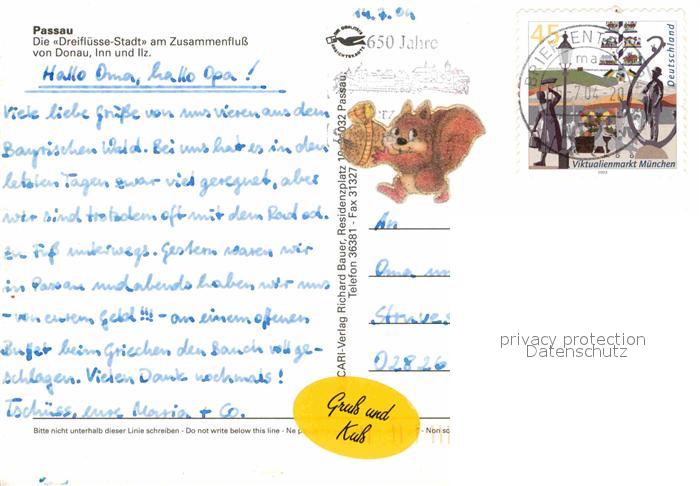 14.7.04
Passau
Die «Dreiflüsse-Stadt» am Zusammenfluß
von Donau, Inn und Ilz.
Hallo Oma, hallo Opa!
Viele liebe Grüße von uns vieren aus dem
Bayrischen Wald. Bei uns hat es in den
letzten Tagen zwar viel geregnet, aber
wir sind trotzdem oft mit dem Rad od.
zu Fuß unterwegs. Gestern waren wir
in Passau und abends haben wir uns
- von eurem Geld !!! - an einem offenen
Buffet beim Griechen den Bauch vollge-
schlagen. Vielen Dank nochmals!
Tschüss, eure Maria + Co.
Bitte nicht unterhalb dieser Linie schreiben - Do not write below this line - Ne
CARI-Verlag Richard Bauer, Residenzplatz 10, 94032 Passau,
Telefon 36381 - Fax 31327
650 Jahre
45
Deutschland
BRIEFZENTRUM
04-20
Viktualienmarkt München
2003
An
Oma un
Struves
02826
Gruß und
Kuß
privacy protection
Datenschutz